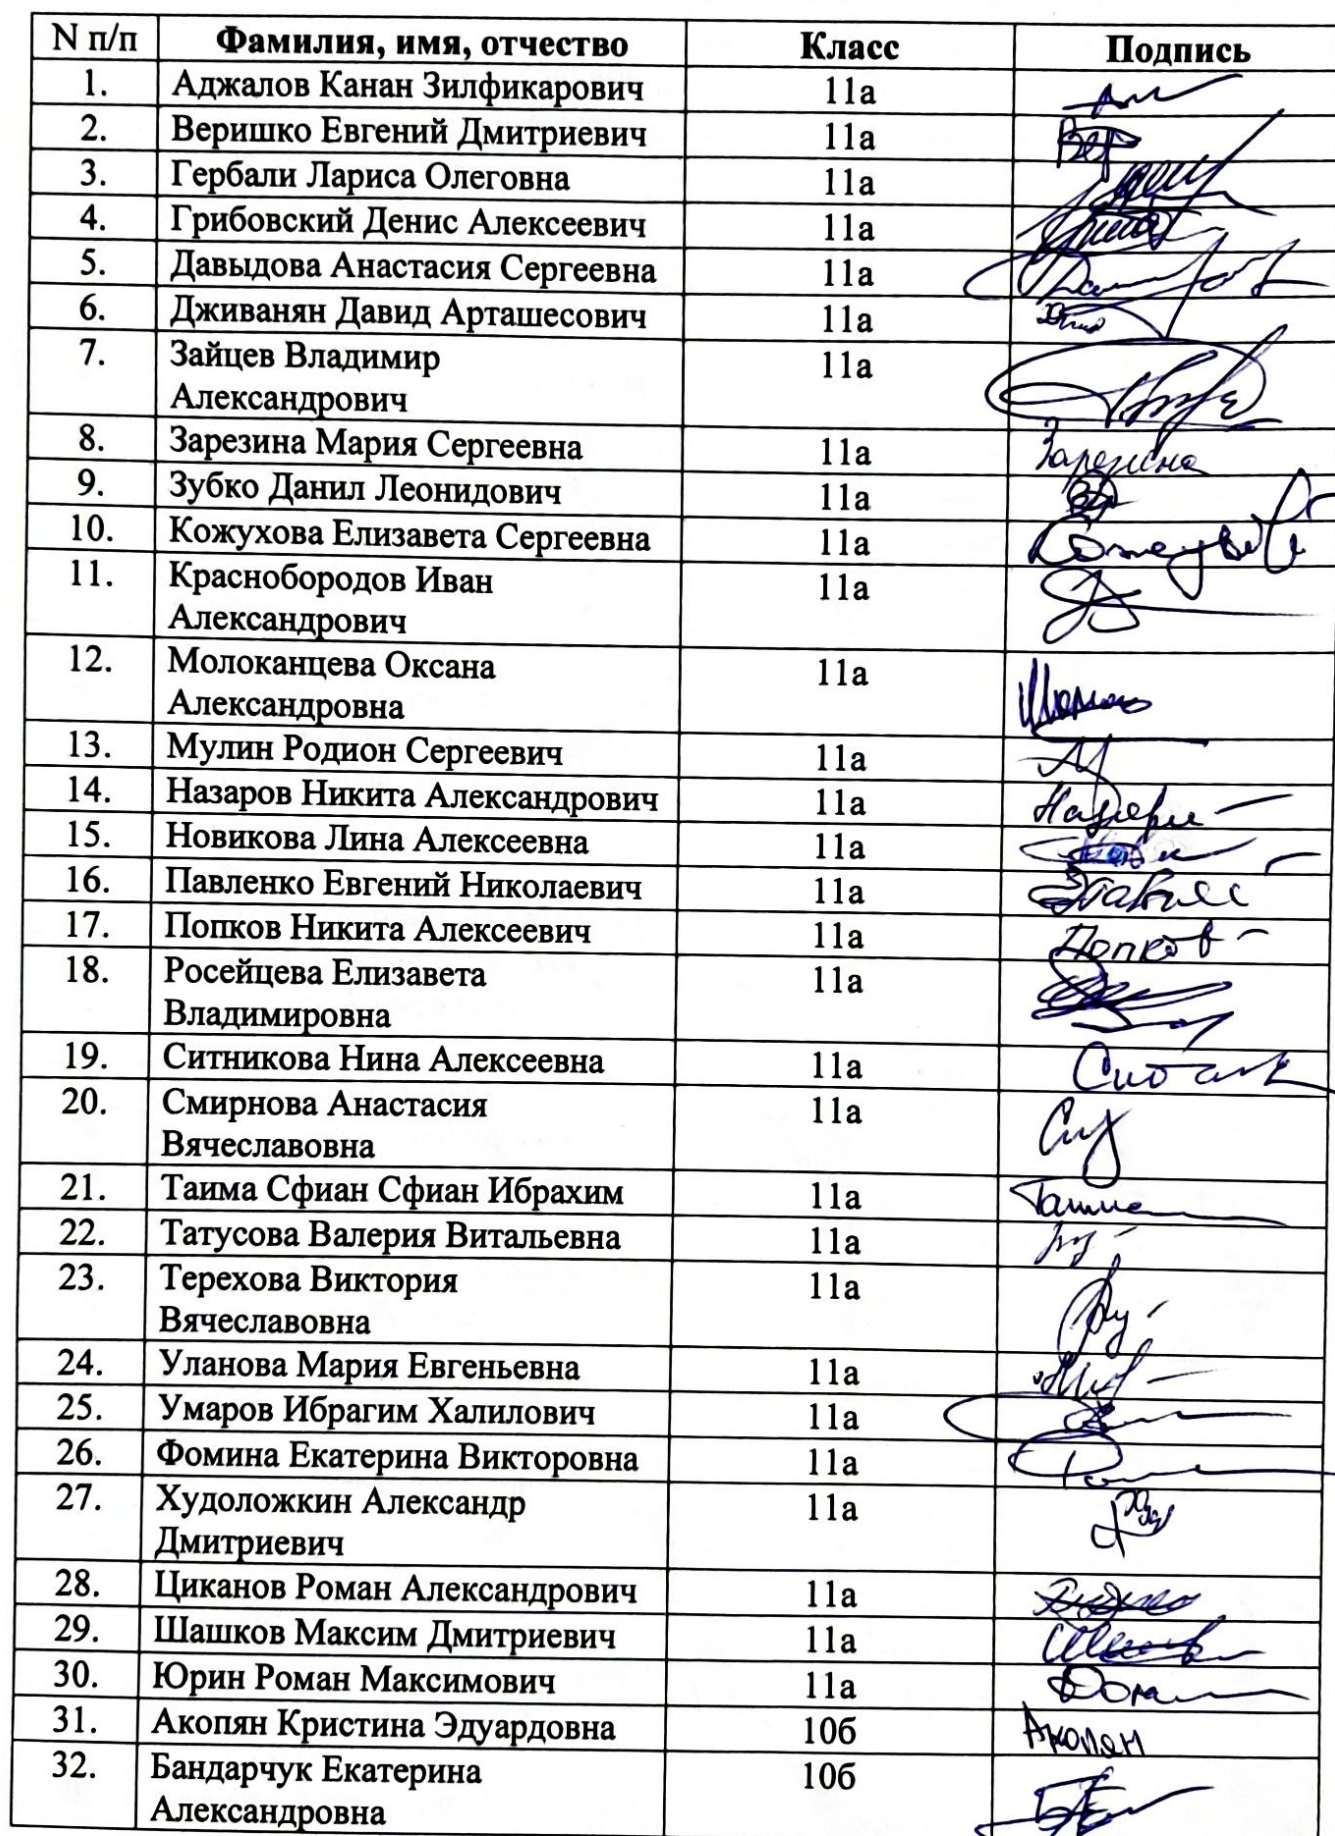 N п/п Фамилия, имя, отчество Класс Подпись
1. Аджалов Канан Зилфикарович 11а
2. Веришко Евгений Дмитриевич 11а Вер
3. Гербали Лариса Олеговна 11а
4. Грибовский Денис Алексеевич 11а
5. Давыдова Анастасия Сергеевна 11а
6. Дживанян Давид Арташесович 11а
7. Зайцев Владимир 11а
Александрович
8. Зарезина Мария Сергеевна 11а Зарезина
9. Зубко Данил Леонидович 11а
10. Кожухова Елизавета Сергеевна 11а
11. Краснобородов Иван 11а
Александрович
12. Молоканцева Оксана 11а
Александровна
13. Мулин Родион Сергеевич 11а
14. Назаров Никита Александрович 11а
15. Новикова Лина Алексеевна 11а
16. Павленко Евгений Николаевич 11а
17. Попков Никита Алексеевич 11а Попков
18. Росейцева Елизавета 11а
Владимировна
19. Ситникова Нина Алексеевна 11а
20. Смирнова Анастасия 11а
Вячеславовна
21. Таима Сфиан Сфиан Ибрахим 11а Таима
22. Татусова Валерия Витальевна 11а
23. Терехова Виктория 11а
Вячеславовна
24. Уланова Мария Евгеньевна 11а
25. Умаров Ибрагим Халилович 11а
26. Фомина Екатерина Викторовна 11а
27. Худоложкин Александр 11а
Дмитриевич
28. Циканов Роман Александрович 11а
29. Шашков Максим Дмитриевич 11а
30. Юрин Роман Максимович 11а
31. Акопян Кристина Эдуардовна 10б Акопян
32. Бандарчук Екатерина 10б
Александровна